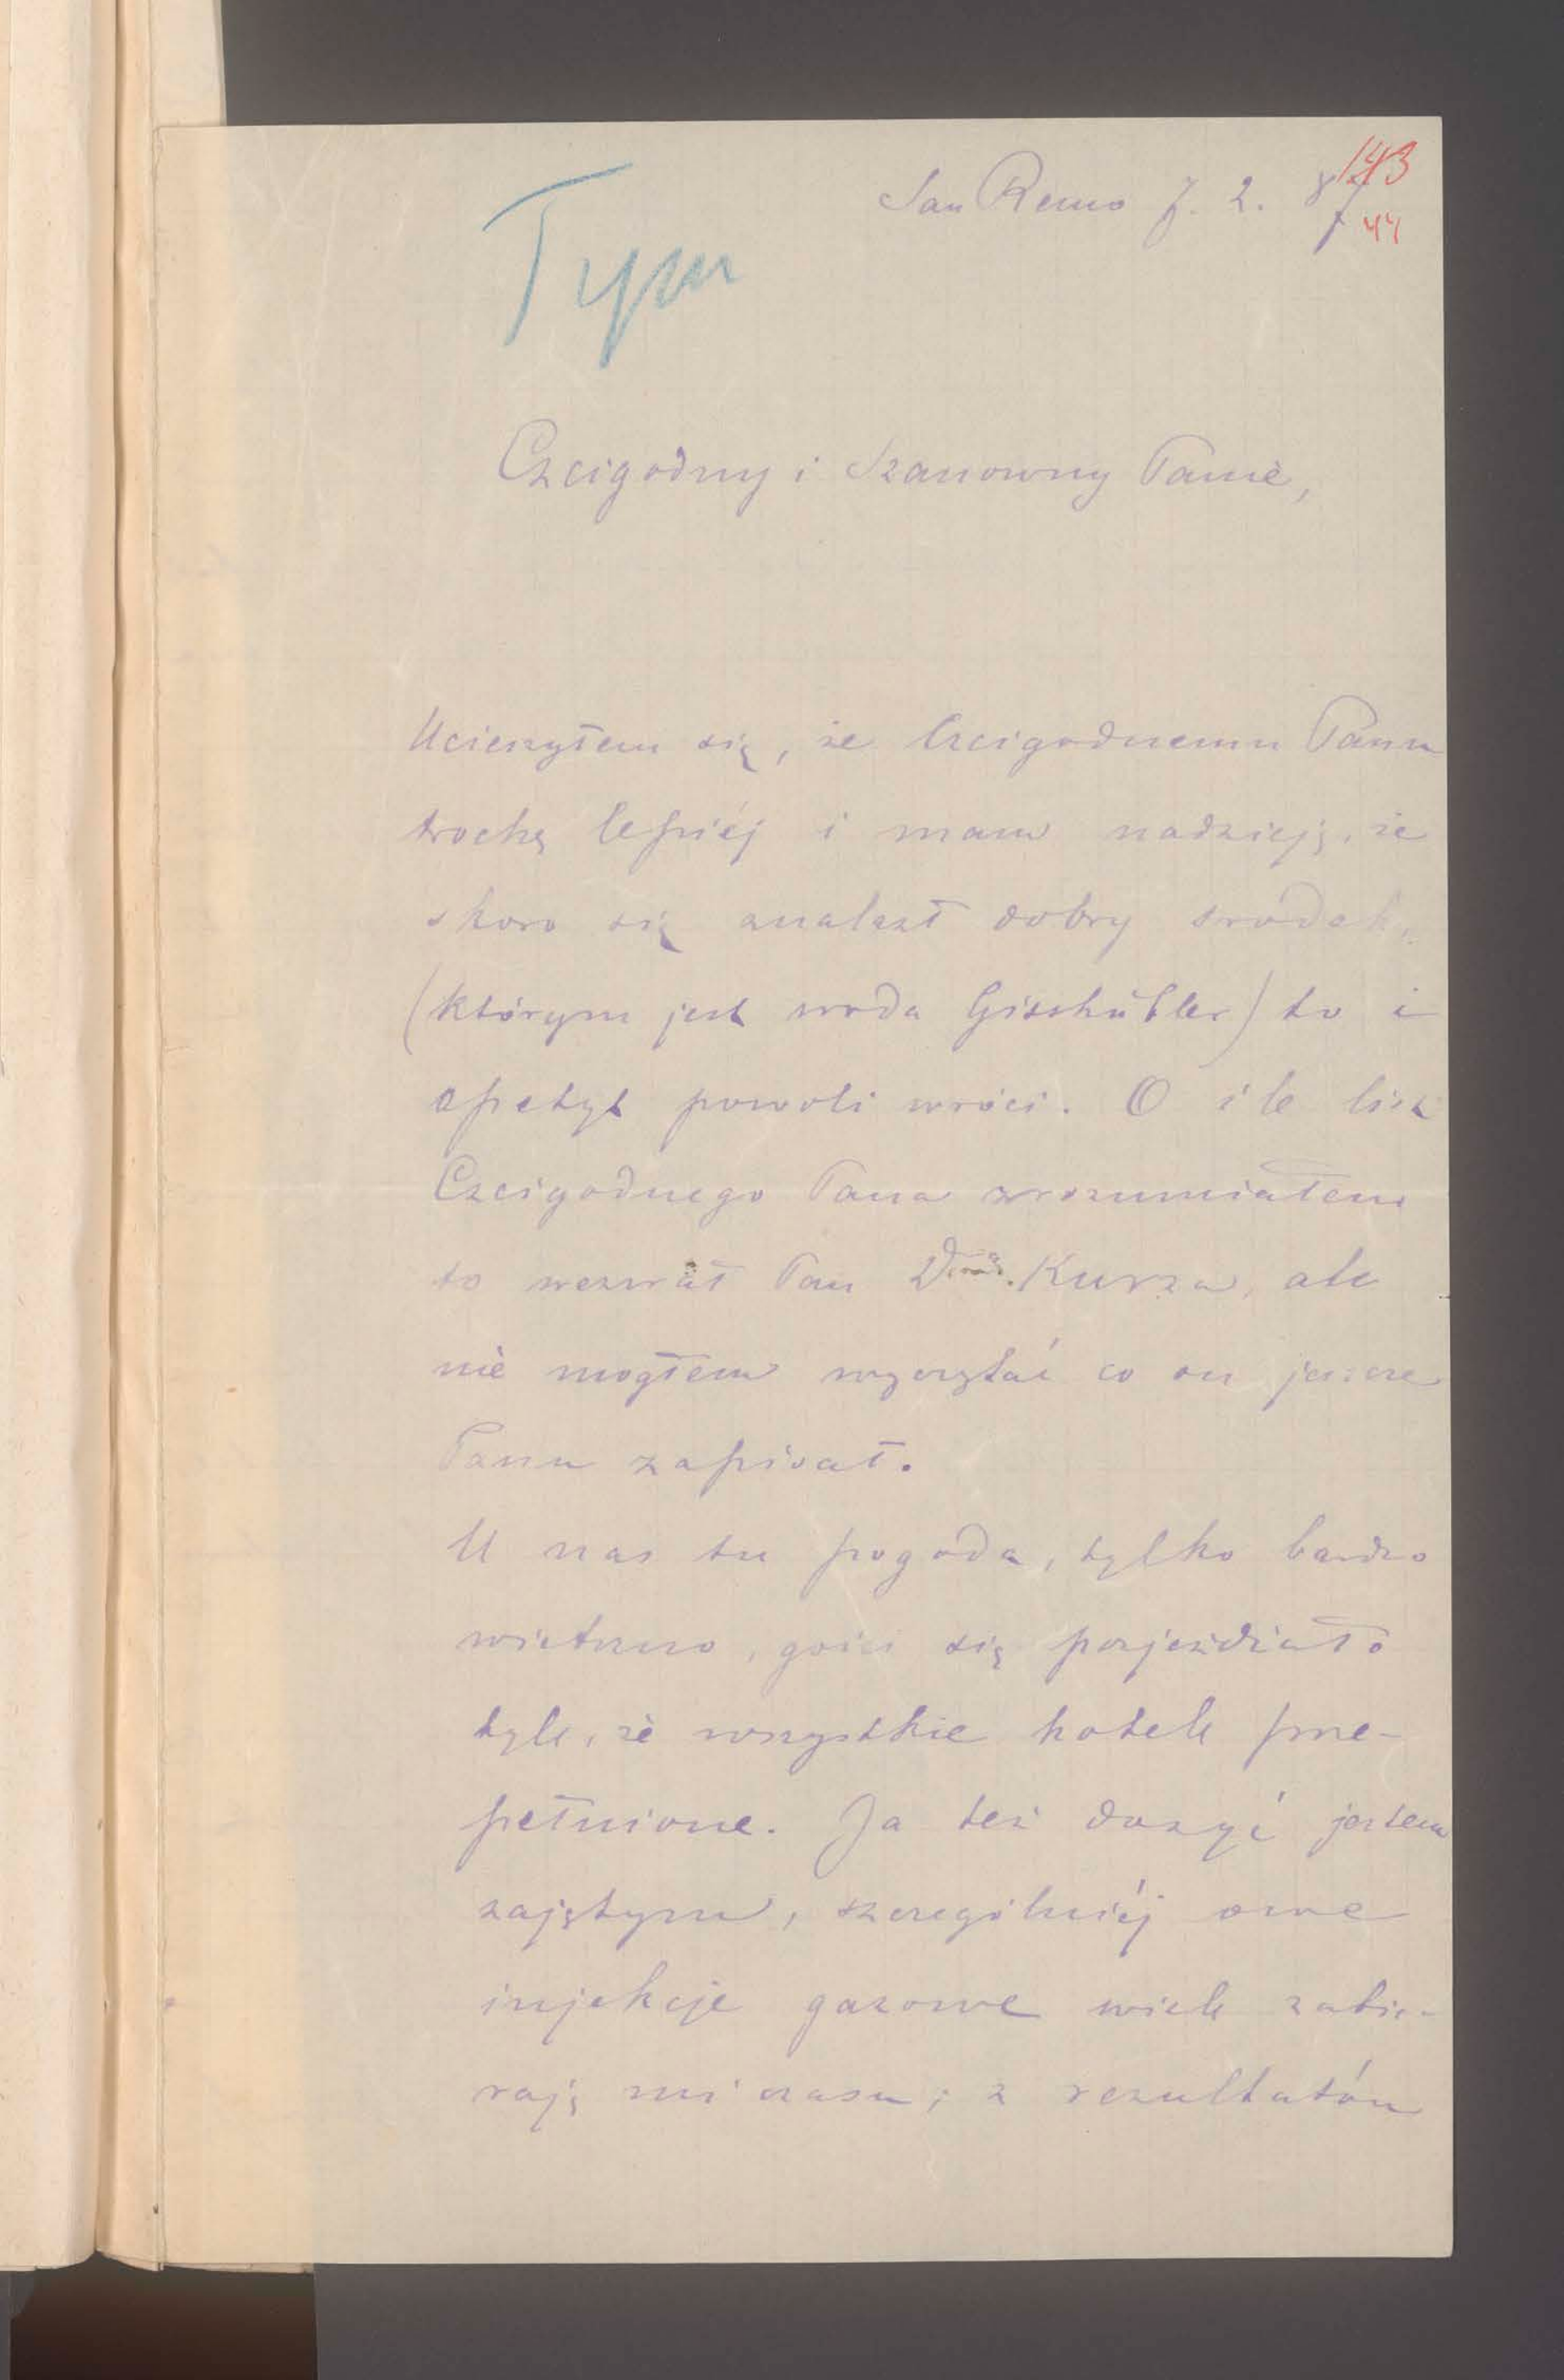 143
San Remo 7. 2. 87
44
Tym
Czcigodny i Szanowny Panie,
Ucieszyłem się, że Czcigodnemu Panu
trochę lepiéj i mam nadzieję, że
skoro się znalazł dobry środek,
(którym jest woda Gisshübler) to i
apetyt powoli wróci. O ile list
Czcigodnego Pana zrozumiałem
to wezwał Pan Kurza, ale
nie mogłem wyczytać co on jeszcze
Panu zapisał.
U nas tu pogoda, tylko bardzo
wietrzno, gości się pozjeżdżało
tyle, że wszystkie hotele prze-
pełnione. Ja też dosyć jestem
zajętym, szczególniéj owe
injekcje gazowe wiele zabie-
rają mi czasu; z rezultatów